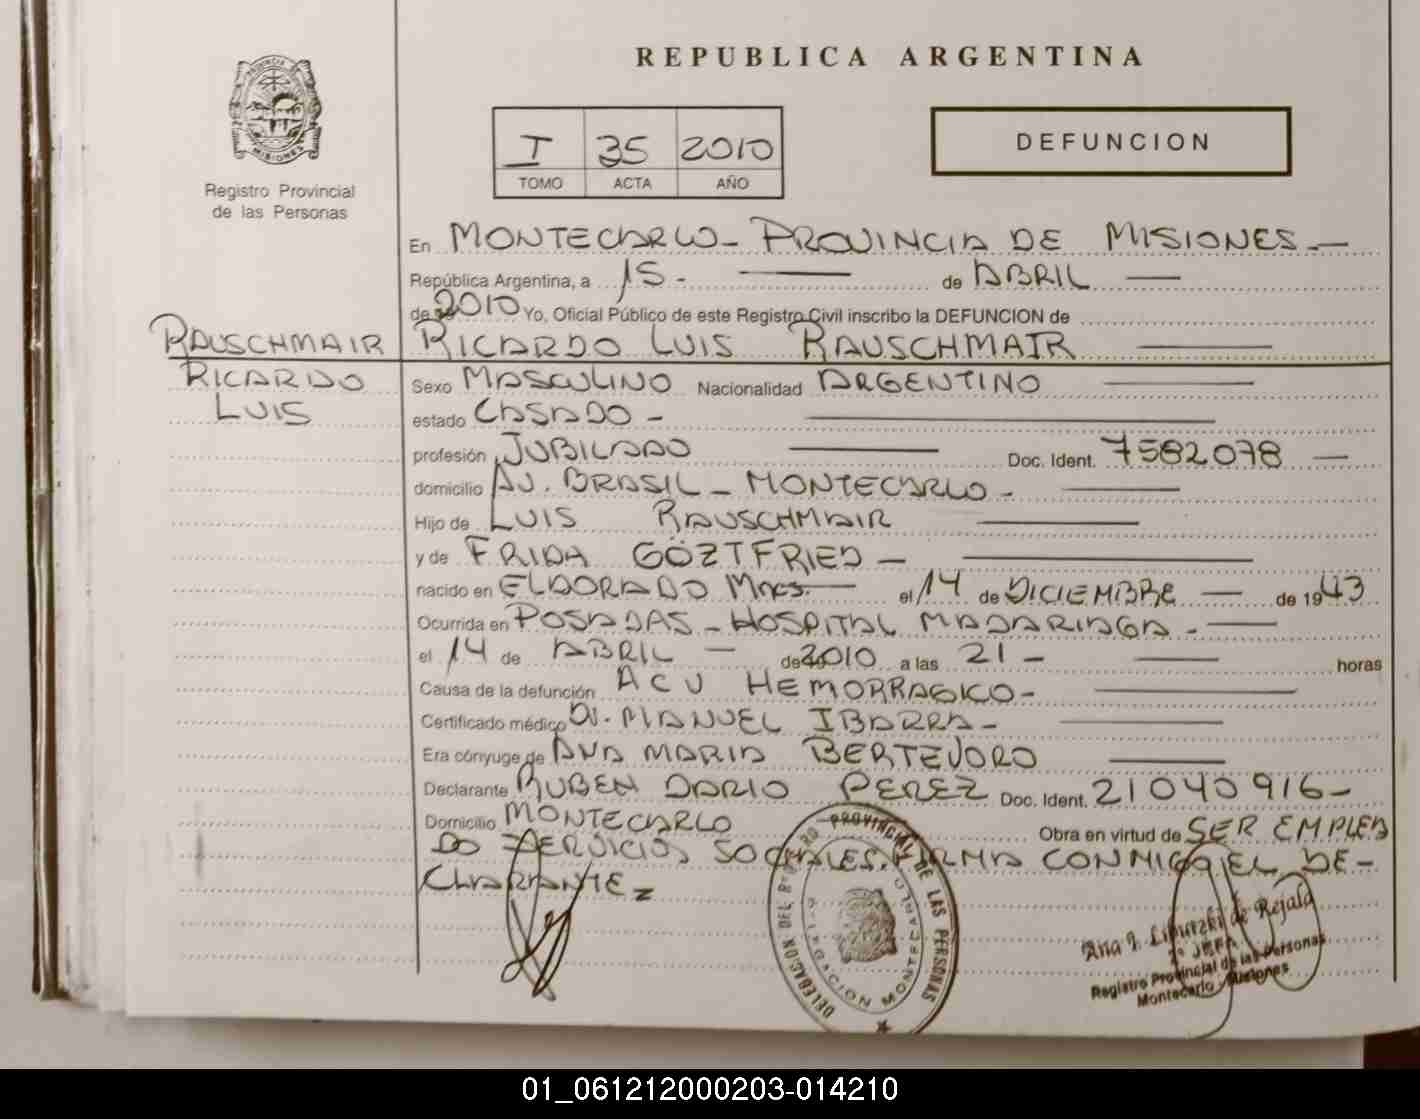 REPUBLICA ARGENTINA
PROVINCIA DE
MISIONES
Registro Provincial
de las Personas
I 35 2010
TOMO ACTA AÑO
DEFUNCION
En MONTECARLO - PROVINCIA DE MISIONES. —
República Argentina, a 15 - — de ABRIL —
de 2010 Yo, Oficial Público de este Registro Civil inscribo la DEFUNCION de
RAUSCHMAIR
RICARDO LUIS RAUSCHMAIR —
RICARDO
LUIS
Sexo MASCULINO Nacionalidad ARGENTINO —
estado CASADO - —
profesión JUBILADO — Doc. Ident. 7582078 —
domicilio AV. BRASIL - MONTECARLO - —
Hijo de LUIS RAUSCHMAIR —
y de FRIDA GÖZTFRIED - —
nacido en ELDORADO Mnes. — el 14 de DICIEMBRE — de 1943
Ocurrida en POSADAS - HOSPITAL MADARIAGA - —
el 14 de ABRIL — de 2010 a las 21 - — horas
Causa de la defunción ACV HEMORRAGICO - —
Certificado médico Dr. MANUEL IBARRA - —
Era cónyuge de ANA MARIA BERTEJORO —
Declarante RUBEN DARIO PEREZ Doc. Ident. 21040916 -
Domicilio MONTECARLO Obra en virtud de SER EMPLEA
DO SERVICIOS SOCIALES. FIRMA CONMIGO EL DE-
CLARANTE =
DELEGACION DEL REGISTRO PROVINCIAL DE LAS PERSONAS
DELEGACION MONTECARLO
Ana I. de Rejala
JEFA
Registro Provincial de las Personas
Montecarlo - Misiones
01_061212000203-014210